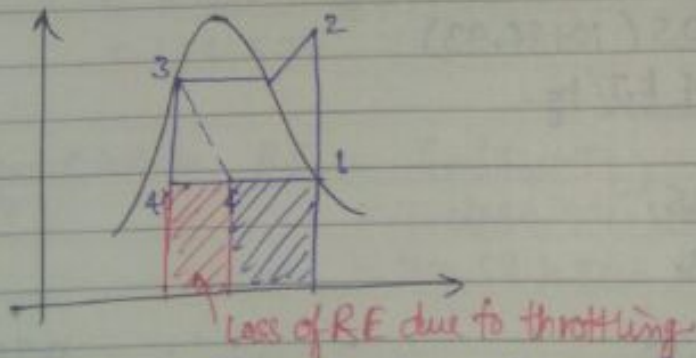 2
3
1
4'
4
Loss of RE due to throttling